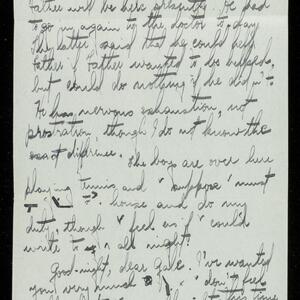 Father will be here presently. He had
to go in again to the doctor to-day.
The latter said that he could help
Father if Father wanted to be helped,
but could do nothing if he didn't.
He has nervous exhaustion, not
prostration though I do not know the
exact difference. The boys are over here
playing tennis and I suppose I must
and do my
duty, though I feel as if I could
write to all night.
Good-night, dear Gale. I've wanted
you very much I don't feel
this time